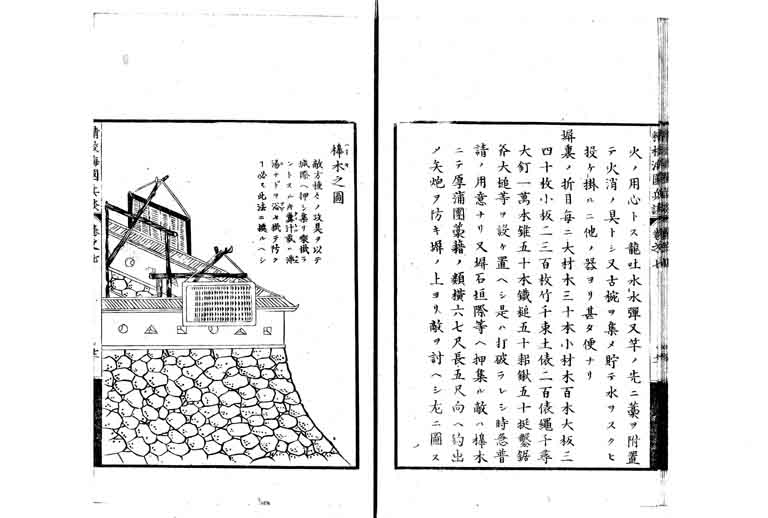 火ノ用心トス龍吐水水彈又竿ノ先ニ藁ヲ附置
テ火消ノ具トシ又古椀ヲ集メ貯テ水ヲスクヒ
投ケ掛ルニ他ノ器ヨリ甚タ便ナリ
塀裏ノ折目毎ニ大材木三十本小材木百本大板三
四十枚小板二三百枚竹千束土俵二百俵繩千尋
大釘一萬本錐五十本鐵鎚五十鍬五十挺鑿鋸
斧大槌等ヲ設ケ置ヘシ是ハ打破ラレシ時急普
請ノ用意ナリ又塀石垣際等ヘ押集ル敵ハ槹木
ニテ厚蒲團藁籍ノ類横六七尺長五尺向ヘ釣出
ノ矢炮ヲ防キ塀ノ上ヨリ敵ヲ討ヘシ左ニ圖ス
槹木之圖
敵方種々ノ攻具ヲ以テ
城際ヘ押シ集リ
ントスル
湯ナドヲ浴セ
必ス此法ニ據ルヘシ
精校海國兵談 卷之七